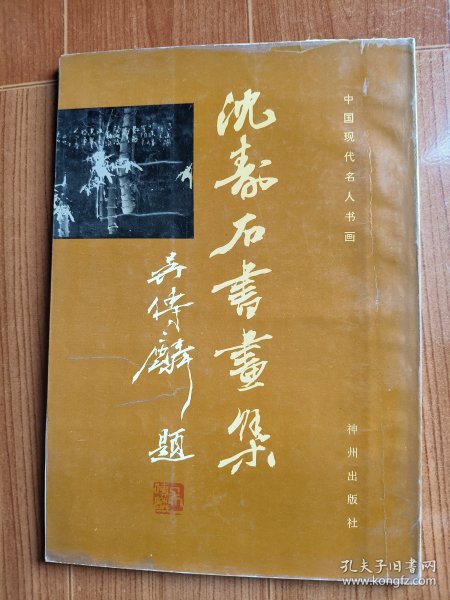 中国现代名人书画
沈寿石書畫集
吴傅麟 题
神州出版社
孔夫子旧书网
www.kongfz.com